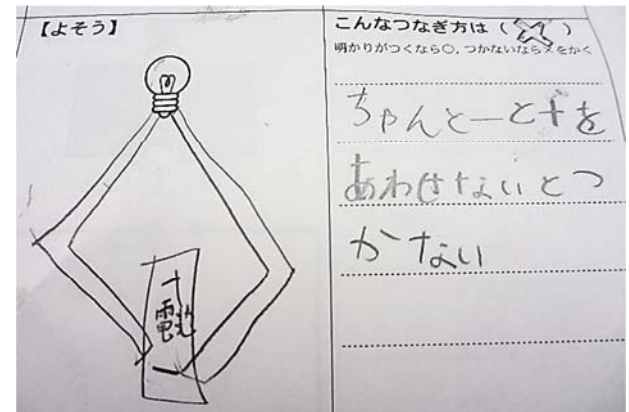 【よそう】
+
電池
ー
こんなつなぎ方は（×）
明かりがつくなら○，つかないなら×をかく
ちゃんとーと+を
あわせないとつ
かない